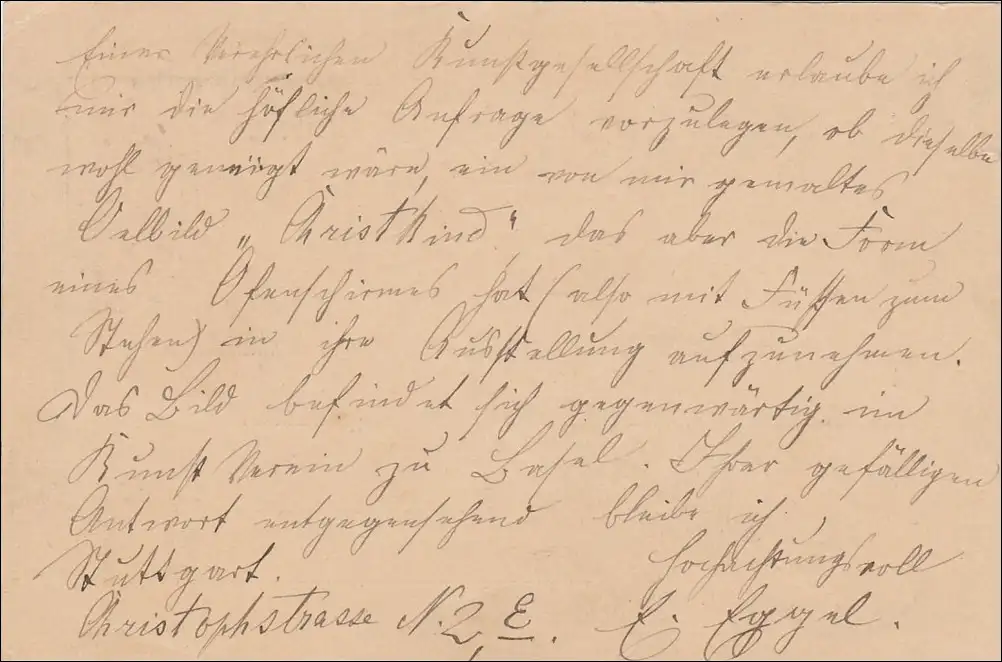 Einer Verehrlichen Kunstgesellschaft erlaube ich
mir die höfliche Anfrage vorzulegen, ob dieselbe
wohl geneigt wäre, ein von mir gemaltes
Oelbild „Christkind“, das aber die Form
eines Ofenschirmes hat (also mit Füssen zum
Stehen) in ihre Ausstellung aufzunehmen.
Das Bild befindet sich gegenwärtig im
Kunst Verein zu Basel. Ihrer gefälligen
Antwort entgegensehend bleibe ich
Stuttgart. Hochachtungsvoll
Christophstrasse N. 2, E. E. Eggel.